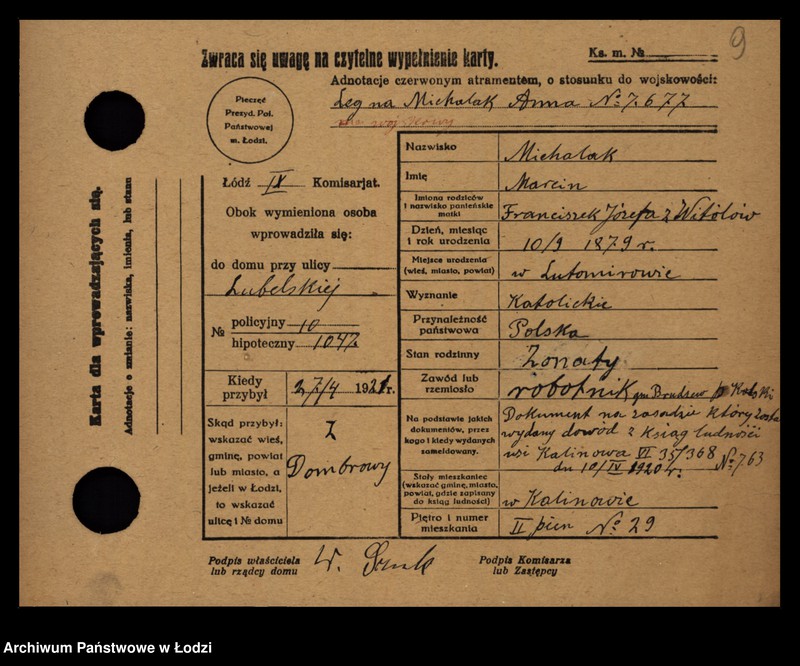 9
Zwraca się uwagę na czytelne wypełnienie karty.
Ks. m. №
Adnotacje czerwonym atramentem, o stosunku do wojskowości:
Leg na Michalak Anna № 7.677
Pieczęć
Prezyd. Pol.
Państwowej
m. Łodzi.
Łódź IX Komisarjat.
Obok wymieniona osoba
wprowadziła się:
do domu przy ulicy
Lubelskiej
№ policyjny 10
hipoteczny 1047
Kiedy przybył 27/4 1921 r.
Skąd przybył:
wskazać wieś,
gminę, powiat
lub miasto, a
jeżeli w Łodzi,
to wskazać
ulicę i № domu
Z
Dombrowy
Nazwisko Michalak
Imię Marcin
Imiona rodziców
i nazwisko panieńskie
matki
Franciszek Józefa z Witólów
Dzień, miesiąc
i rok urodzenia
10/9 1879 r.
Miejsce urodzenia
(wieś, miasto, powiat)
w Lutomirowie
Wyznanie Katolickie
Przynależność
państwowa
Polska
Stan rodzinny Żonaty
Zawód lub
rzemiosło
robotnik gm Brudzew
Na podstawie jakich
dokumentów, przez
kogo i kiedy wydanych
zameldowany.
Dokument na zasadzie który został
wydany dowód z Ksiąg ludności
wsi Kalinowa VI 35/368
dn 10/IV 1920 r. № 763
Stały mieszkaniec
(wskazać gminę, miasto,
powiat, gdzie zapisany
do ksiąg ludności)
w Kalinowie
Piętro i numer
mieszkania
II pien № 29
Podpis właściciela
lub rządcy domu
W.
Podpis Komisarza
lub Zastępcy
Karta dla wprowadzających się.
Adnotacje o zmianie: nazwiska, imienia, lub stanu
Archiwum Państwowe w Łodzi